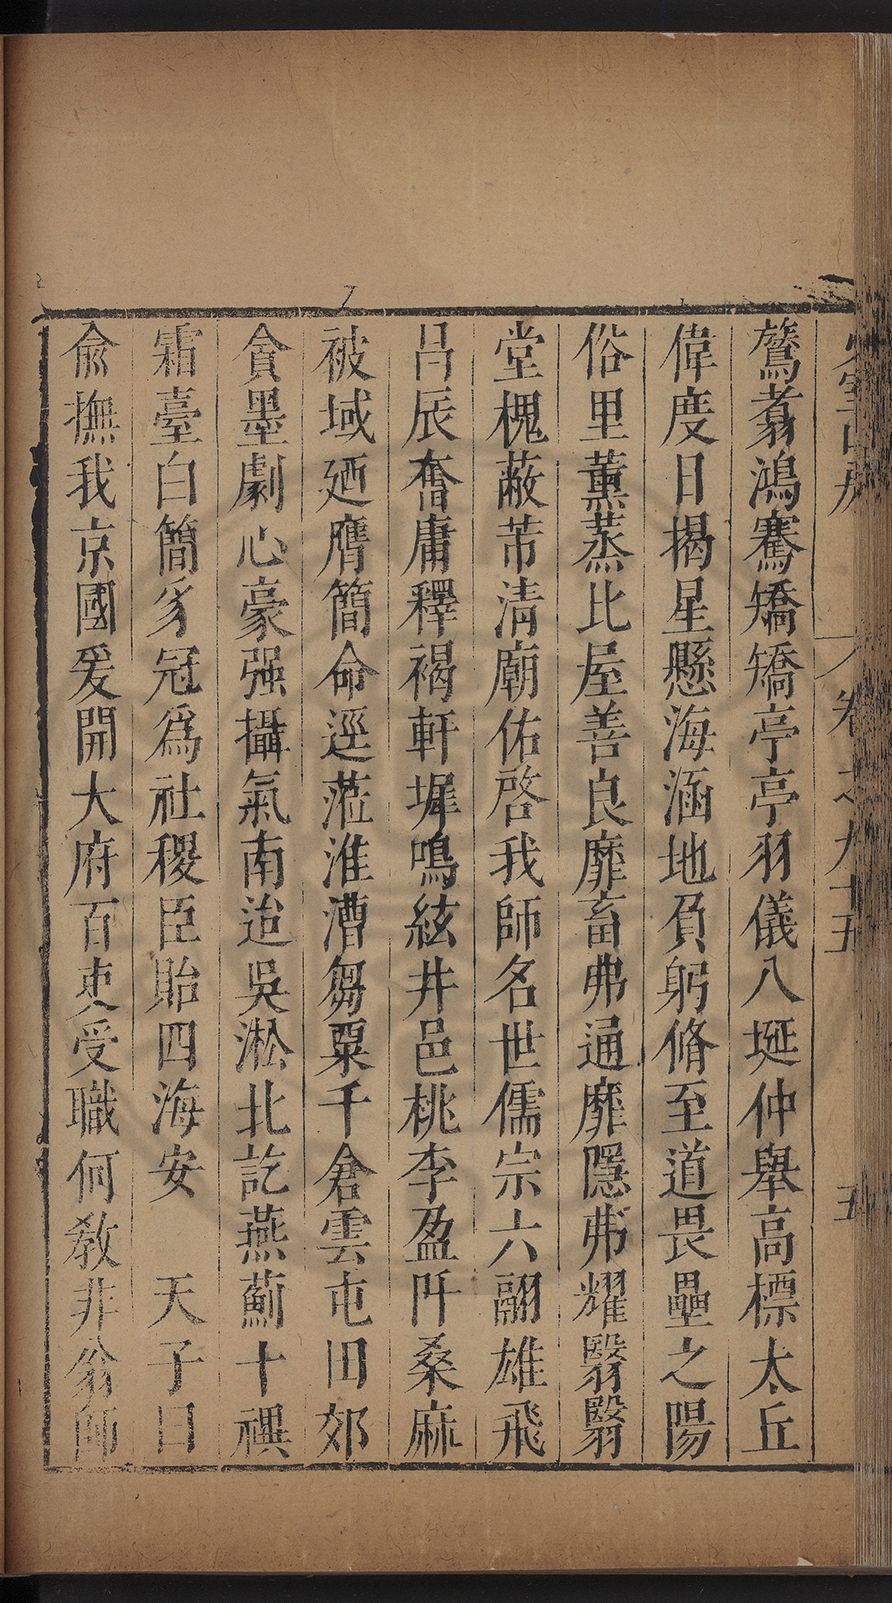 卷之九十五 五
鷟翥鴻騫矯矯亭亭羽儀八埏仲舉高標太丘
偉度日揭星懸海涵地負躬脩至道畏壘之陽
俗里薰蒸比屋善良靡畜弗通靡隱弗耀翳翳
堂槐蔽芾清廟佑啓我師名世儒宗六翮雄飛
呂辰奮庸釋褐軒墀鳴絃井邑桃李盈阡桑麻
被域廼膺簡命遥蒞淮漕芻粟千倉雲屯田郊
貪墨劇心豪强攝氣南迨吳淞北訖燕薊十禩
霜臺白簡豸冠爲社稷臣貽四海安 天子曰
俞撫我京國爰開大府百吏受職何教非翁師